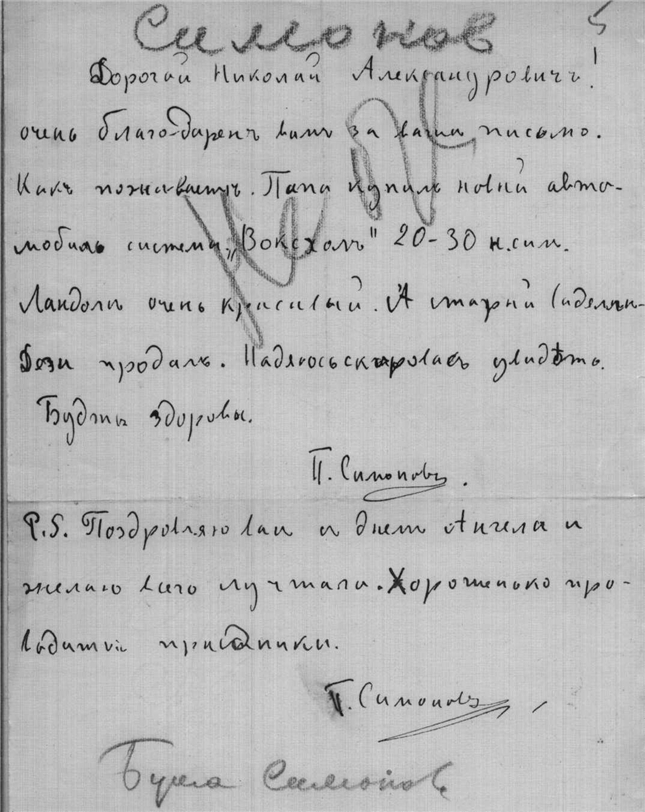 Симонов
Дорогой Николай Александровичъ!
очень благодаренъ вамъ за ваша письмо.
Какъ поживаетъ. Папа купилъ новий авто-
мобиль система „Воксхолъ" 20-30 н.сил.
Ландолъ очень красивый. А старий
продалъ. увидѣть.
Будты здоровы.
П. Симоновъ.
P.S. Поздровляю вам с днем Ангела и
желаю всего лутчаго. Хорошенько про-
водитки присдники.
П. Симоновъ
Симонов